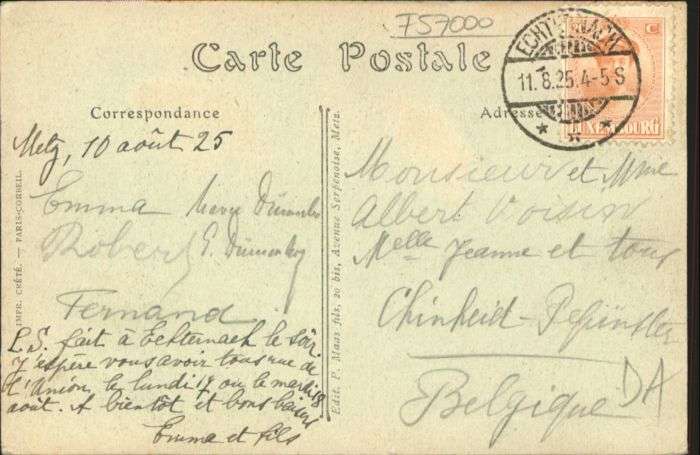 757000
Carte Postale
ECHTERNACH
11.8.25.4-5 S
LUXEMBOURG
Correspondance
Adresse
Metz, 10 août 25
Emma
Robert
Fernand
P.S. fait à Echternach le soir.
J'espère vous avoir tous rue de
l'Union, le lundi 17 ou le mardi 18
août. A bientôt et bons baisers
Emma et fils
IMPR. CRÉTÉ. — PARIS-CORBEIL.
Edit. P. Maas fils, 20 bis, Avenue Serpenoise, Metz.
Monsieur et Mme
Albert Voisin
Melle Jeanne et tous
Chinheid-Pepinster
Belgique
DA